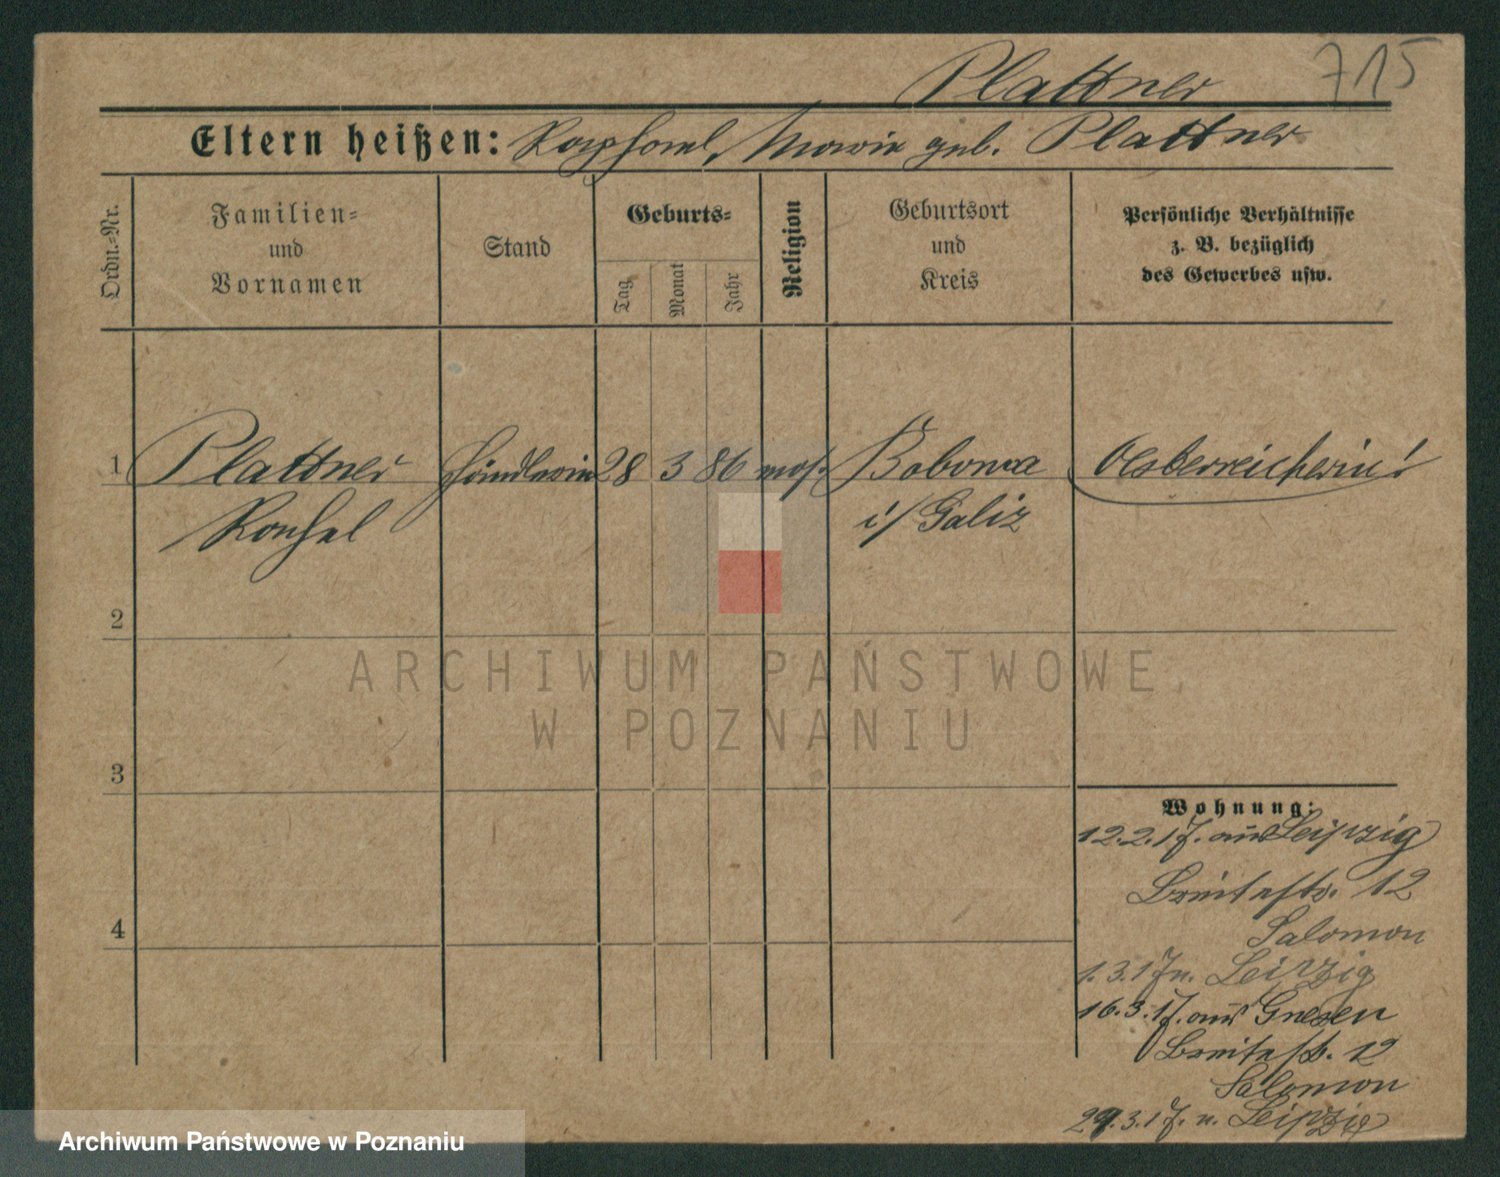 Plattner 715
Eltern heißen: Raphael, Marie geb. Plattner
Ordn.-Nr.
Familien-
und
Vornamen
Stand
Geburts-
Tag
Monat
Jahr
Religion
Geburtsort
und
Kreis
Persönliche Verhältnisse
z. B. bezüglich
des Gewerbes usw.
1 Plattner Händlerin 28 3 86 mos. Bobowa Oesterreicherin!
i/Galiz
2
3
4
Wohnung:
12.2.17. aus Leipzig
Breitestr. 12
Salomon
1.3.17 n. Leipzig
16.3.17. aus Gnesen
Breitestr. 12
Salomon
29.3.17. n. Leipzig
ARCHIWUM PAŃSTWOWE
W POZNANIU
Archiwum Państwowe w Poznaniu